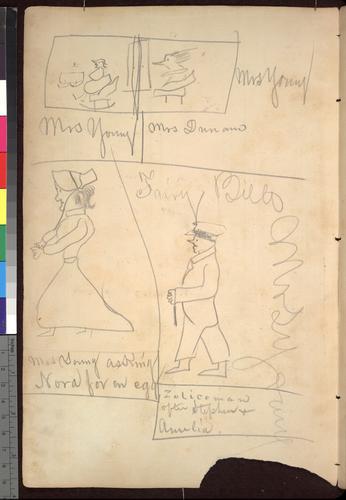 Mrs Young
Mrs Young
Mrs Duncan
Fairy Bells
Mrs Young
Mrs Young asking
Nora for an egg
Policeman
after Stephen &
Amelia.